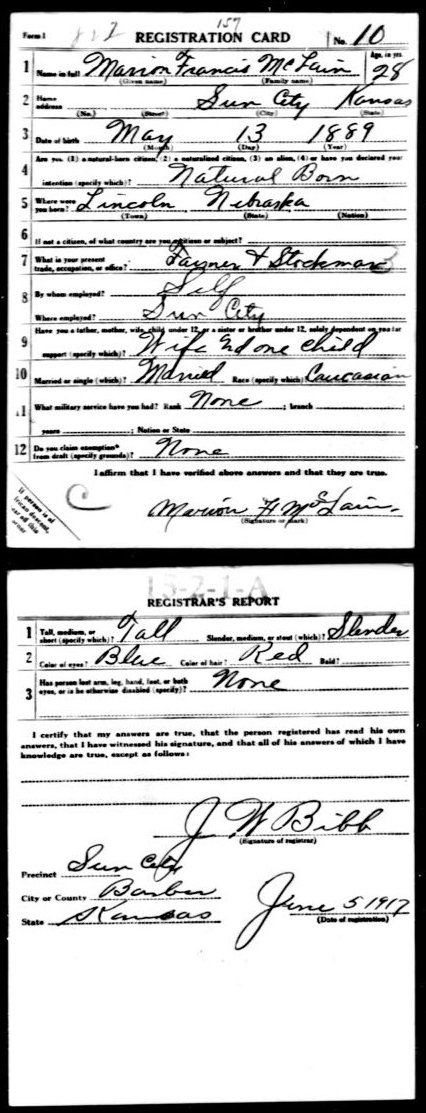 Form 1 822 157
REGISTRATION CARD No. 10
1 Name in full Marion Francis McLain Age, in yrs. 28
(Given name) (Family name)
2 Home address Sun City Kansas
(No.) (Street) (City) (State)
3 Date of birth May 13 1889
(Month) (Day) (Year)
Are you (1) a natural-born citizen, (2) a naturalized citizen, (3) an alien, (4) or have you declared your
4 intention (specify which)? Natural Born
5 Where were you born? Lincoln Nebraska
(Town) (State) (Nation)
6 If not a citizen, of what country are you a citizen or subject?
7 What is your present trade, occupation, or office? Farmer & Stockman
8 By whom employed? Self
Where employed? Sun City
Have you a father, mother, wife, child under 12, or a sister or brother under 12, solely dependent on you for
9 support (specify which)? Wife and one child
10 Married or single (which)? Married Race (specify which)? Caucasian
11 What military service have you had? Rank None ; branch ;
years ; Nation or State
12 Do you claim exemption from draft (specify grounds)? None
I affirm that I have verified above answers and that they are true.
C
If person is of
African descent,
tear off this
corner
Marion F McLain
(Signature or mark)
15-2-1-A
REGISTRAR'S REPORT
1 Tall, medium, or short (specify which)? Tall Slender, medium, or stout (which)? Slender
2 Color of eyes? Blue Color of hair? Red Bald?
3 Has person lost arm, leg, hand, foot, or both eyes, or is he otherwise disabled (specify)? None
I certify that my answers are true, that the person registered has read his own
answers, that I have witnessed his signature, and that all of his answers of which I have
knowledge are true, except as follows:
J W Bibb
(Signature of registrar)
Precinct Sun City
City or County Barber
State Kansas
June 5 1917
(Date of registration)